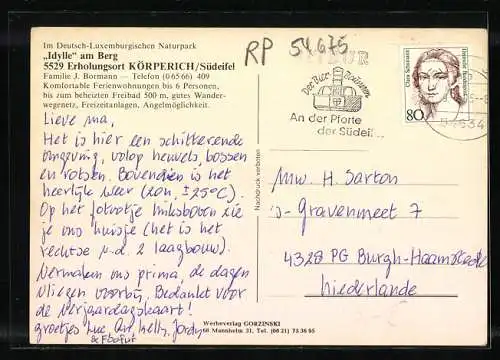 Im Deutsch-Luxemburgischen Naturpark
„Idylle" am Berg
5529 Erholungsort KÖRPERICH/Südeifel
Familie J. Bormann — Telefon (0 65 66) 409
Komfortable Ferienwohnungen bis 6 Personen,
bis zum beheizten Freibad 500 m, gutes Wander-
wegenetz, Freizeitanlagen, Angelmöglichkeit.
RP 54675
Lieve ma,
Het is hier een schitterende
omgeving, volop heuvels, bossen
en rotsen. Bovendien is het
heerlijk weer (zon, ± 25°C).
Op het fotootje linksboven zie
je ons huisje (het is het
rechtse m.d. 2 laagbouw).
Vermaken ons prima, de dagen
vliegen voorbij. Bedankt voor
de verjaardagskaart!
groetjes
Nachdruck verboten
Der Bier Brunnen
An der Pforte
der Südeif
Clara Schumann
Deutsche Bundespost
80
Mw. H. Sarton
's-Gravenmeet 7
4328 PG Burgh-Haamstede
Niederlande
Werbeverlag GORZINSKI
68 Mannheim 31, Tel. (06 21) 73 36 95